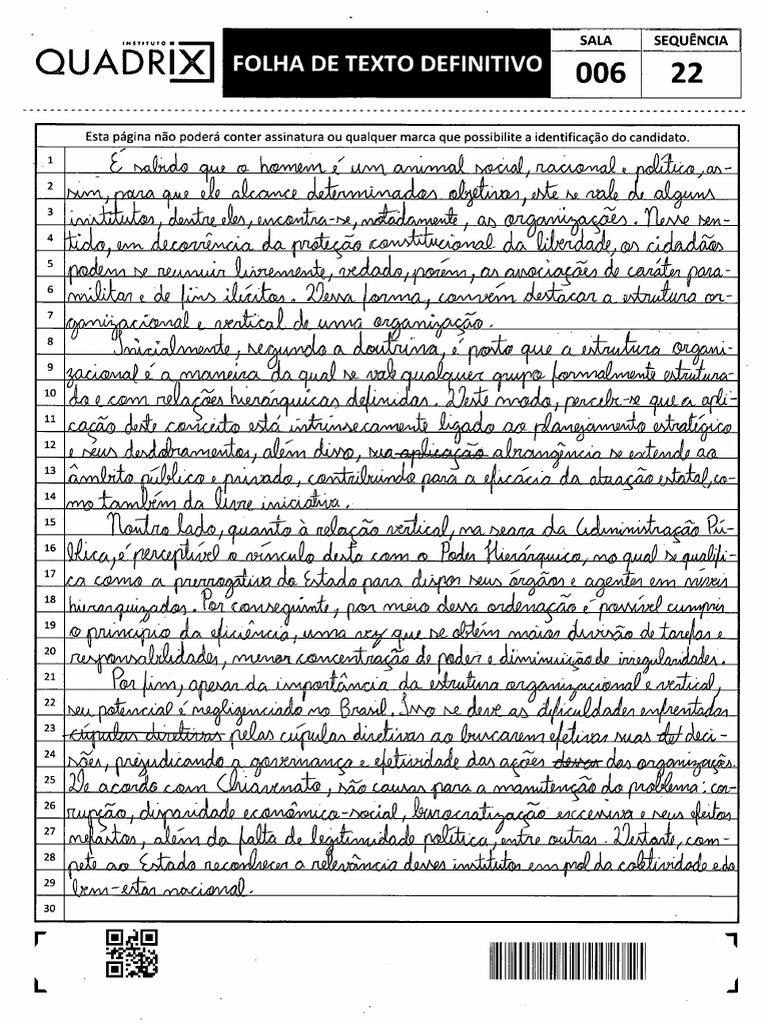 INSTITUTO
QUADRIX
FOLHA DE TEXTO DEFINITIVO
SALA
006
SEQUÊNCIA
22
Esta página não poderá conter assinatura ou qualquer marca que possibilite a identificação do candidato.
1 É sabido que o homem é um animal social, racional e político, as-
2 sim, para que ele alcance determinados objetivos, este se vale de alguns
3 institutos, dentre eles, encontra-se, notadamente, as organizações. Nesse sen-
4 tido, em decorrência da proteção constitucional da liberdade, os cidadãos
5 podem se reunir livremente, vedado, porém, as associações de caráter para-
6 militar e de fins ilícitos. Dessa forma, convém destacar a estrutura or-
7 ganizacional e vertical de uma organização.
8 Inicialmente, segundo a doutrina, é posto que a estrutura organi-
9 zacional é a maneira da qual se vale qualquer grupo formalmente estrutura-
10 do e com relações hierárquicas definidas. Deste modo, percebe-se que a apli-
11 cação deste conceito está intrinsecamente ligado ao planejamento estratégico
12 e seus desdobramentos, além disso, sua aplicação abrangência se estende ao
13 âmbito público e privado, contribuindo para a eficácia da atuação estatal, co-
14 mo também da livre iniciativa.
15 Noutro lado, quanto à relação vertical, na seara da Administração Pú-
16 blica, é perceptível o vínculo desta com o Poder Hierárquico, no qual se qualifi-
17 ca como a prerrogativa do Estado para dispor seus órgãos e agentes em níveis
18 hierarquizados. Por conseguinte, por meio dessa ordenação é possível cumprir
19 o princípio da eficiência, uma vez que se obtém maior divisão de tarefas e
20 responsabilidades, menor concentração de poder e diminuição de irregularidades.
21 Por fim, apesar da importância da estrutura organizacional e vertical,
22 seu potencial é negligenciado no Brasil. Isso se deve as dificuldades enfrentadas
23 cúpulas diretivas pelas cúpulas diretivas ao buscarem efetivar suas deci-
24 sões, prejudicando a governança e efetividade das ações das organizações.
25 De acordo com Chiavenato, são causas para a manutenção do problema: cor-
26 rupção, disparidade econômico-social, burocratização excessiva e seus efeitos
27 nefastos, além da falta de legitimidade política, entre outras. Destarte, com-
28 pete ao Estado reconhecer a relevância desses institutos em prol da coletividade e do
29 bem-estar nacional.
30